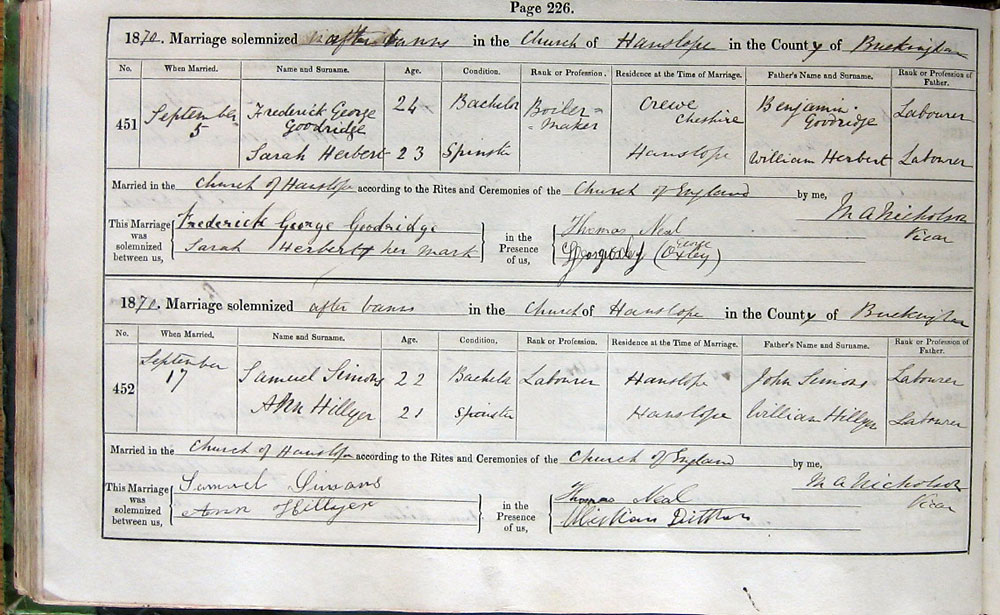 Page 226.
1870. Marriage solemnized after banns in the Church of Hanslope in the County of Buckingham
No. When Married. Name and Surname. Age. Condition. Rank or Profession. Residence at the Time of Marriage. Father's Name and Surname. Rank or Profession of Father.
451 September 5 Frederick George Goodridge 24 Bachelor Boiler = = maker Crewe Cheshire Benjamin Goodridge Labourer
Sarah Herbert 23 Spinster Hanslope William Herbert Labourer
Married in the Church of Hanslope according to the Rites and Ceremonies of the Church of England by me,
M A Nicholson
Vicar
This Marriage was solemnized between us,
Frederick George Goodridge
Sarah Herbert X her mark
in the Presence of us,
Thomas Neal
(George Oxley)
1870. Marriage solemnized after banns in the Church of Hanslope in the County of Buckingham
No. When Married. Name and Surname. Age. Condition. Rank or Profession. Residence at the Time of Marriage. Father's Name and Surname. Rank or Profession of Father.
452 September 17 Samuel Simons 22 Bachelor Labourer Hanslope John Simons Labourer
Ann Hillyer 21 Spinster Hanslope William Hillyer Labourer
Married in the Church of Hanslope according to the Rites and Ceremonies of the Church of England by me,
M A Nicholson
Vicar
This Marriage was solemnized between us,
Samuel Simons
Ann Hillyer
in the Presence of us,
Thomas Neal